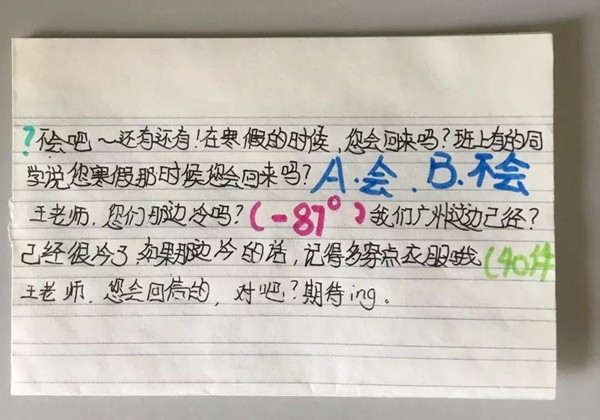 ?不会吧～还有还有!在寒假的时候,您会回来吗?班上有的同
学说您寒假那时候您会回来吗?A.会.B.不会
王老师,您们那边冷吗?(-87°)我们广州这边已经?
已经很冷了,如果那边冷的话,记得多穿点衣服哦(40件
王老师,您会回信的,对吧?期待ing。